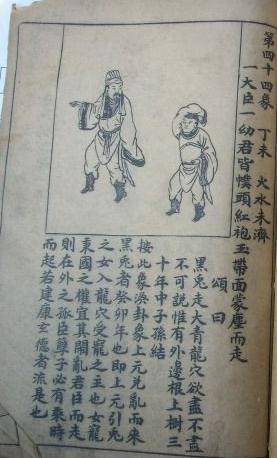 第四十四象 丁未 火水未濟
一大臣一幼君皆幞頭紅袍玉帶面蒙塵而走
頌曰
黑兎走大青龍穴欲盡不盡
不可說惟有外邊根上樹三
十年中子孫結
按此象渙卦象上元兌亂而來
黑兎者癸卯年也即上元引兎
之女入龍穴受寵之主也女寵
秉國之權宜其開亂君臣而走
則在外之孤臣孽子必有乘時
而起若建康玄德者流是也